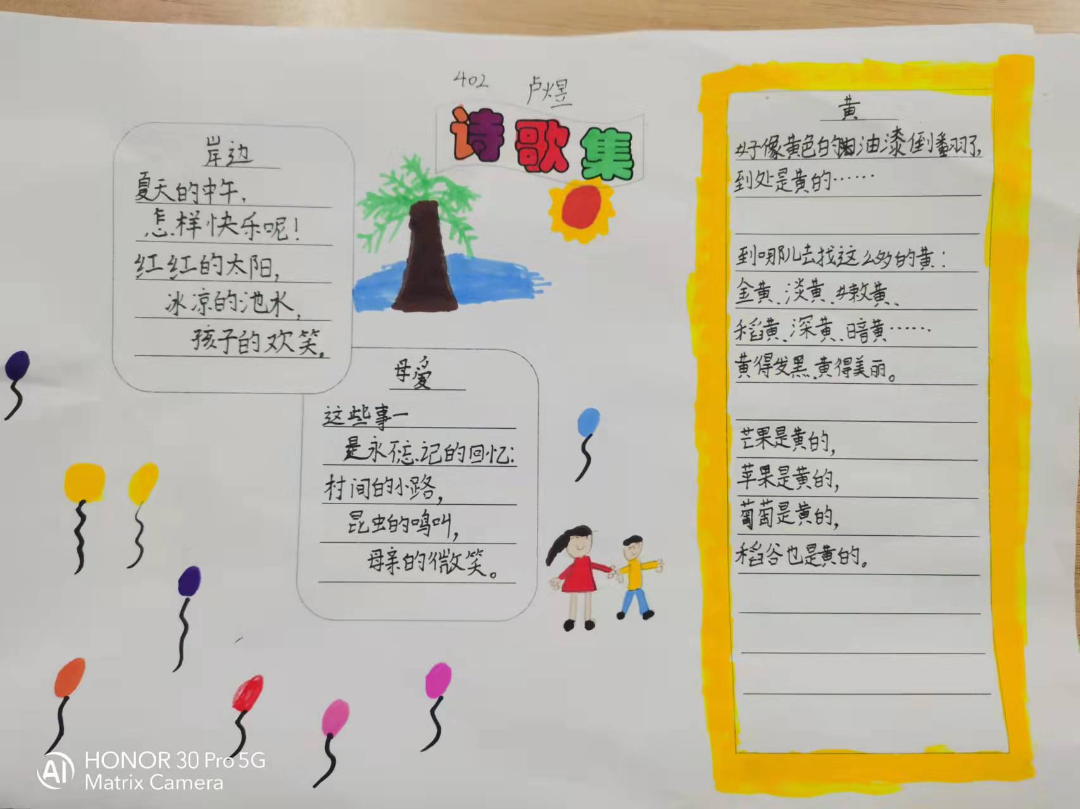 402 卢煜
诗歌集
岸边
夏天的中午,
怎样快乐呢!
红红的太阳,
冰凉的池水,
孩子的欢笑。
母爱
这些事一
是永忘记的回忆:
村间的小路,
昆虫的鸣叫,
母亲的微笑。
黄
好像黄色的油漆倒翻了,
到处是黄的……
到哪儿去找这么多的黄:
金黄、淡黄、嫩黄、
稻黄、深黄、暗黄……
黄得发黑、黄得美丽。
芒果是黄的,
苹果是黄的,
葡萄是黄的,
稻谷也是黄的。
HONOR 30 Pro 5G
Matrix Camera
AI